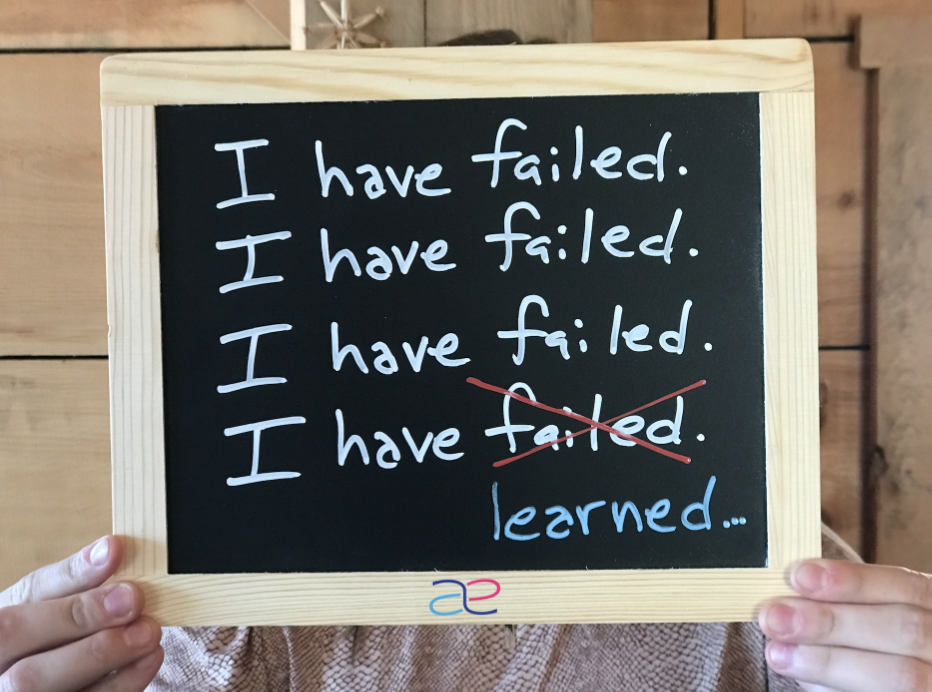 I have failed.
I have failed.
I have failed.
I have failed.
learned...
æ